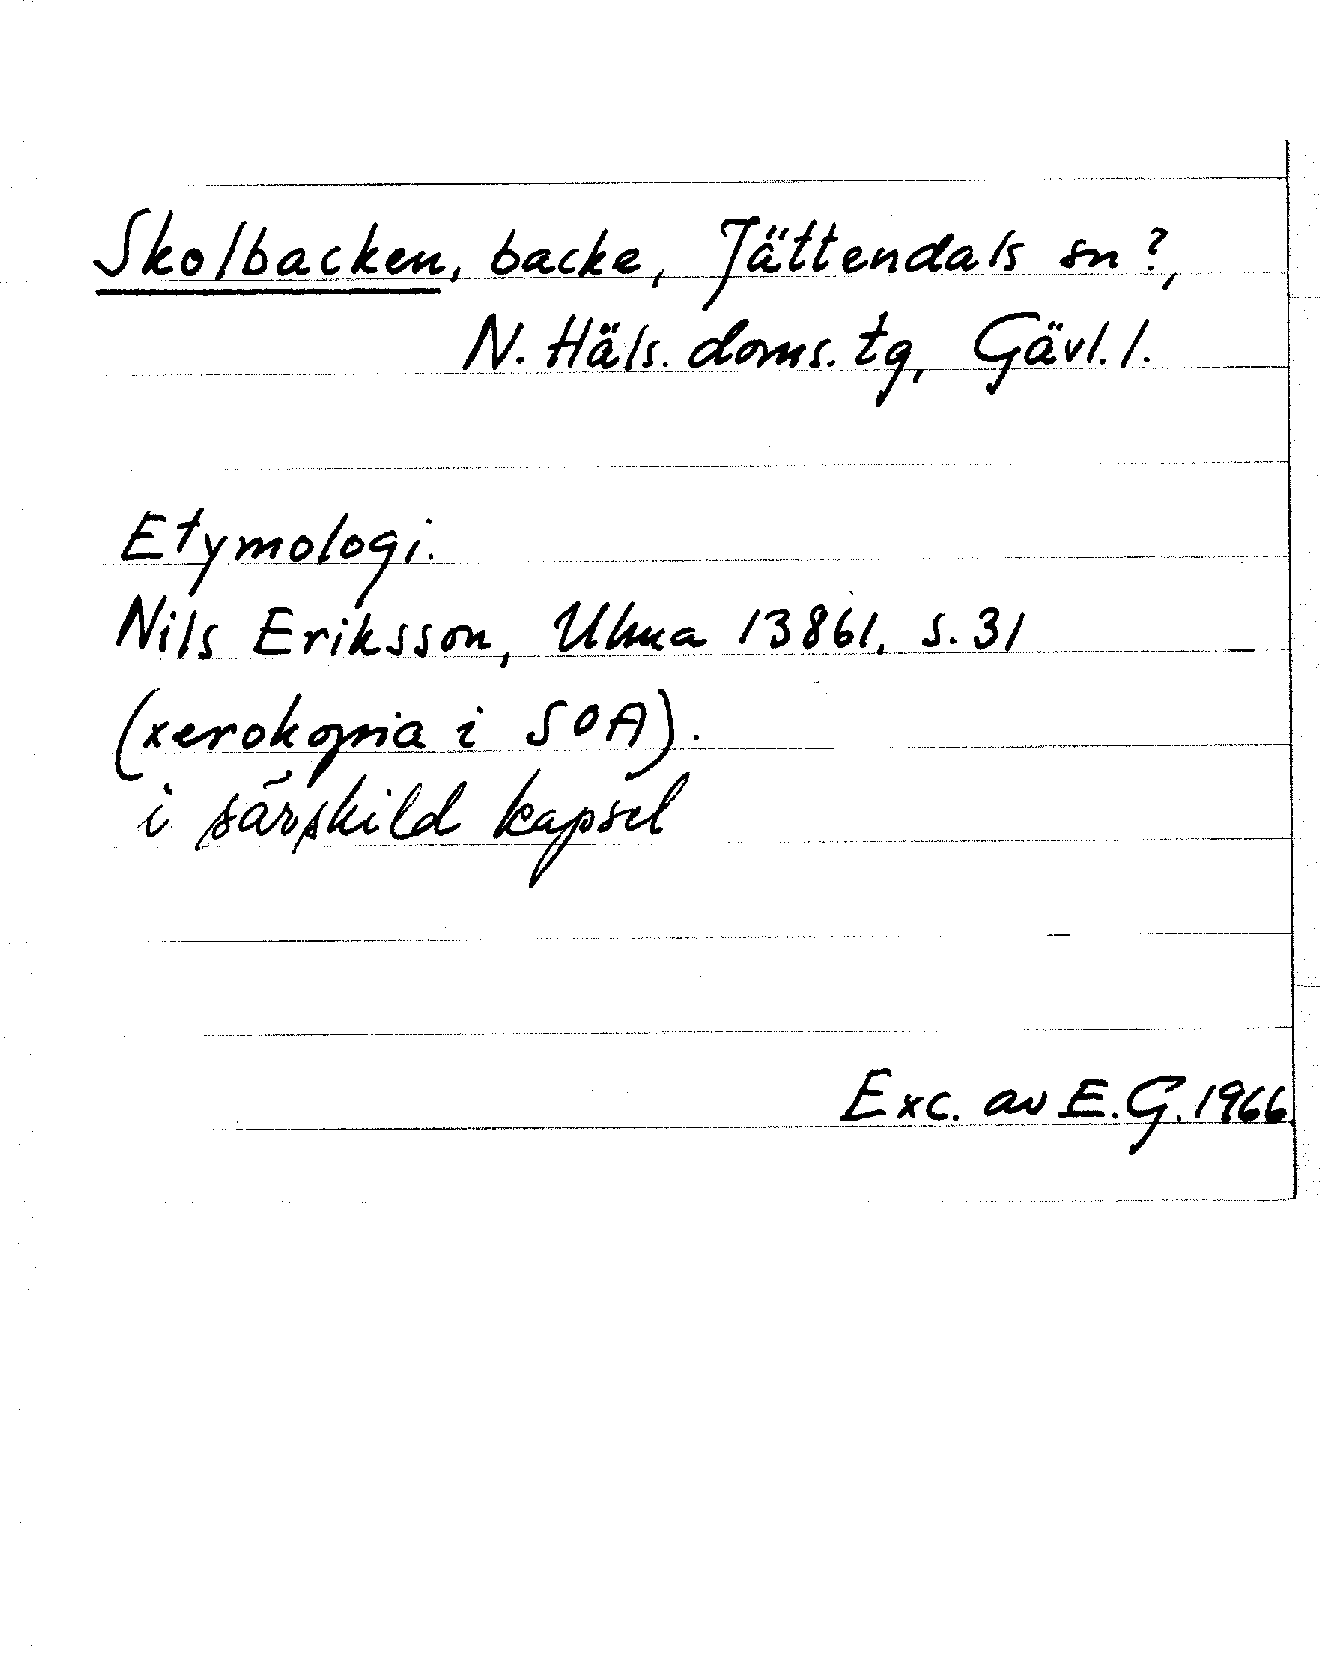 Skolbacken, backe, Jättendals sn?,
N. Häls. doms. tg, Gävl. l.
Etymologi.
Nils Eriksson, Ulma 13861, s. 31
(xerokopia i SOA).
i särskild kapsel
Exc. av E.G. 1966